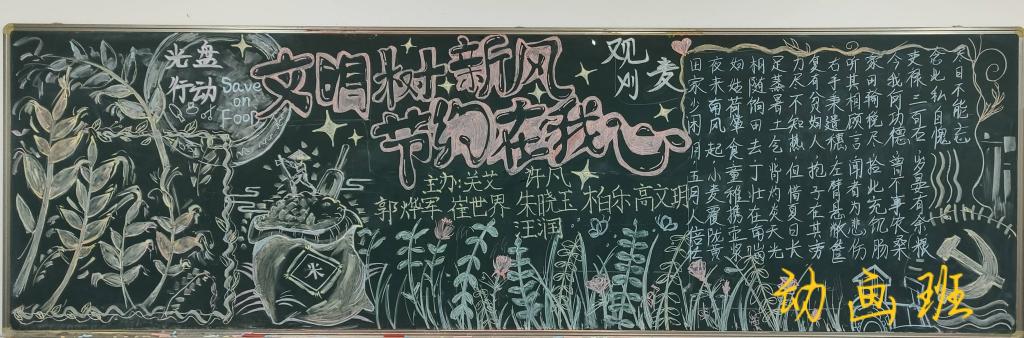 光盘
行动
Save
on
Food
文明树新风
节约在我心
主办:关艾 许凡
郭烨军 崔世界 朱晓玉 柏乐 高文琪
汪润
观刈麦
田家少闲月 五月人倍忙
夜来南风起 小麦覆陇黄
妇姑荷箪食 童稚携壶浆
相随饷田去 丁壮在南冈
足蒸暑土气 背灼炎天光
力尽不知热 但惜夏日长
复有贫妇人 抱子在其旁
右手秉遗穗 左臂悬敝筐
听其相顾言 闻者为悲伤
家田输税尽 拾此充饥肠
今我何功德 曾不事农桑
吏禄三百石 岁晏有余粮
念此私自愧
尽日不能忘
米
动画班